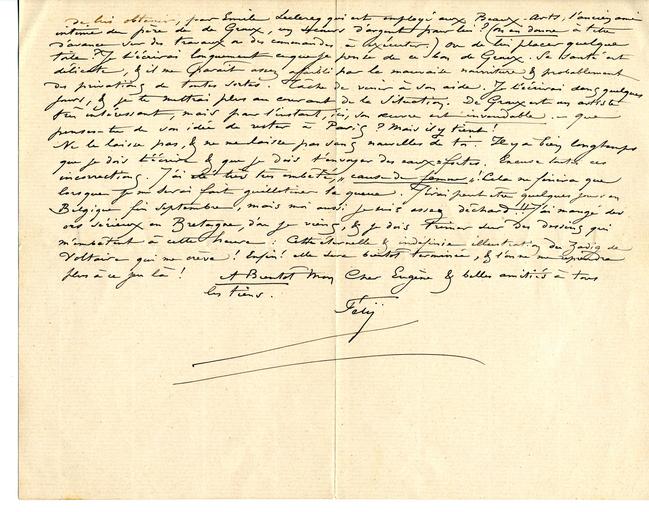 de lui obtenir, par Emile Leclercq qui est employé aux Beaux-Arts, l'ancien ami
intime du père de de Groux, un secours d'argent pour lui ! (on en donne à titre
d'avance sur des travaux ou des commandes à exécuter) ou de lui placer quelque
toile. Je t'écrirai longuement ce que je pense de ce bon de Groux. Sa santé est
délicate, & il me paraît assez affaibli par la mauvaise nourriture & probablement
des privations de toutes sortes. Tâche de venir à son aide. Je t'écrirai dans quelques
jours, & je te mettrai plus au courant de la situation. De Groux est un artiste
très intéressant, mais pour l'instant, ici, son œuvre est invendable. – que
penses-tu de son idée de rester à Paris ? Mais il y tient !
Ne le laisse pas, & ne me laisse pas sans nouvelles de toi. Il y a bien longtemps
que je dois t'écrire & que je dois t'envoyer des eaux-fortes. Excuse toutes ces
incorrections. J'ai été très très embêté, « cause de femme » ! Cela ne finira que
lorsque je me serai fait guillotiner la queue. J'irai peut être quelques jours en
Belgique fin septembre, mais moi aussi je suis assez déchard !!! J'ai mangé des
ors sérieux en Bretagne, d'où je viens, & je dois trimer sur des dessins qui
m'embêtent à cette heure : Cette éternelle & indéfinie illustration du Zadig de
Voltaire qui me crève ! Enfin ! elle sera bientôt terminée, & l'on ne me reprendra
plus à ce jeu là !
A Bientot Mon Cher Eugène & belles amitiés à tous
les tiens.
Fély